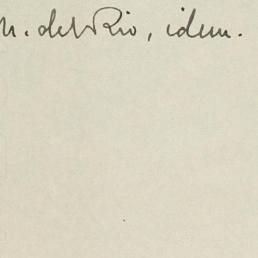 n. del Rio, idem.